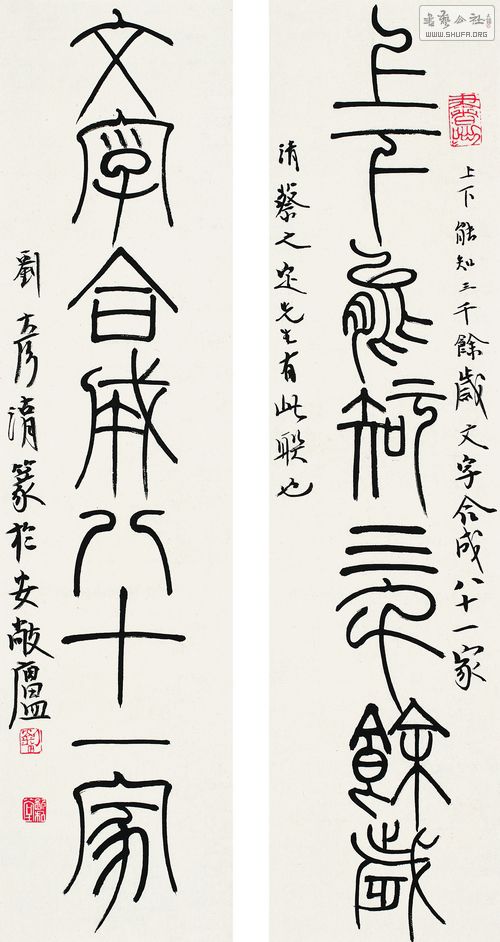 書藝公社
WWW.SHUFA.ORG
上下能知三千餘歲文字合成八十一家
上下能知三千餘歲
清蔡之定先生有此聯也
文字合成八十一家
劉彥湖篆於安敞廬